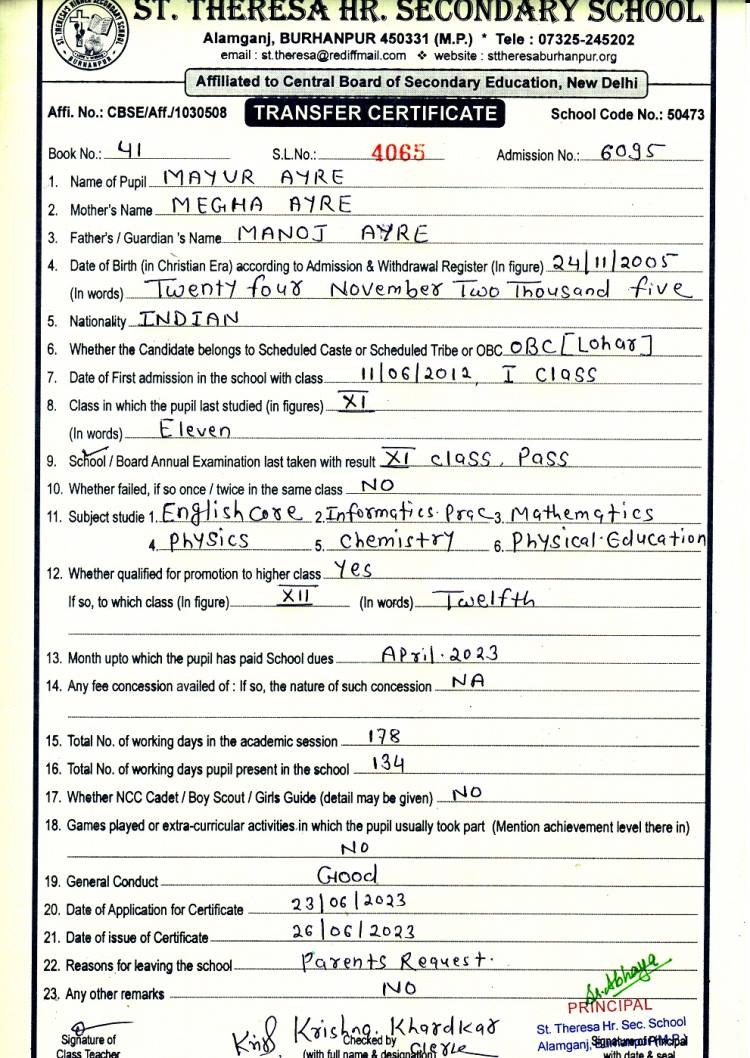 ST. THERESA HR. SECONDARY SCHOOL
Alamganj, BURHANPUR 450331 (M.P.) * Tele : 07325-245202
email : st.theresa@rediffmail.com ❖ website : sttheresaburhanpur.org
Affiliated to Central Board of Secondary Education, New Delhi
Affi. No.: CBSE/Aff./1030508 TRANSFER CERTIFICATE School Code No.: 50473
Book No.: 41 S.L.No.: 4065 Admission No.: 6095
1. Name of Pupil MAYUR AYRE
2. Mother's Name MEGHA AYRE
3. Father's / Guardian 's Name MANOJ AYRE
4. Date of Birth (in Christian Era) according to Admission & Withdrawal Register (In figure) 24/11/2005
(In words) Twenty four November Two Thousand five
5. Nationality INDIAN
6. Whether the Candidate belongs to Scheduled Caste or Scheduled Tribe or OBC OBC [Lohar]
7. Date of First admission in the school with class 11/06/2012, I Class
8. Class in which the pupil last studied (in figures) XI
(In words) Eleven
9. School / Board Annual Examination last taken with result XI class, Pass
10. Whether failed, if so once / twice in the same class NO
11. Subject studie 1. English Core 2. Informatics. Prac 3. Mathematics
4. Physics 5. Chemistry 6. Physical. Education
12. Whether qualified for promotion to higher class Yes
If so, to which class (In figure) XII (In words) Twelfth
13. Month upto which the pupil has paid School dues April. 2023
14. Any fee concession availed of : If so, the nature of such concession NA
15. Total No. of working days in the academic session 178
16. Total No. of working days pupil present in the school 134
17. Whether NCC Cadet / Boy Scout / Girls Guide (detail may be given) NO
18. Games played or extra-curricular activities in which the pupil usually took part (Mention achievement level there in)
NO
19. General Conduct Good
20. Date of Application for Certificate 23/06/2023
21. Date of issue of Certificate 26/06/2023
22. Reasons for leaving the school Parents Request.
23. Any other remarks NO
Sr. Abhaya
PRINCIPAL
St. Theresa Hr. Sec. School
Alamganj, Burhanpur (M.P.)
Signature of Principal
with date & seal
Krishna Khardkar
Signature of Checked by
Class Teacher (with full name & designation) Clerk